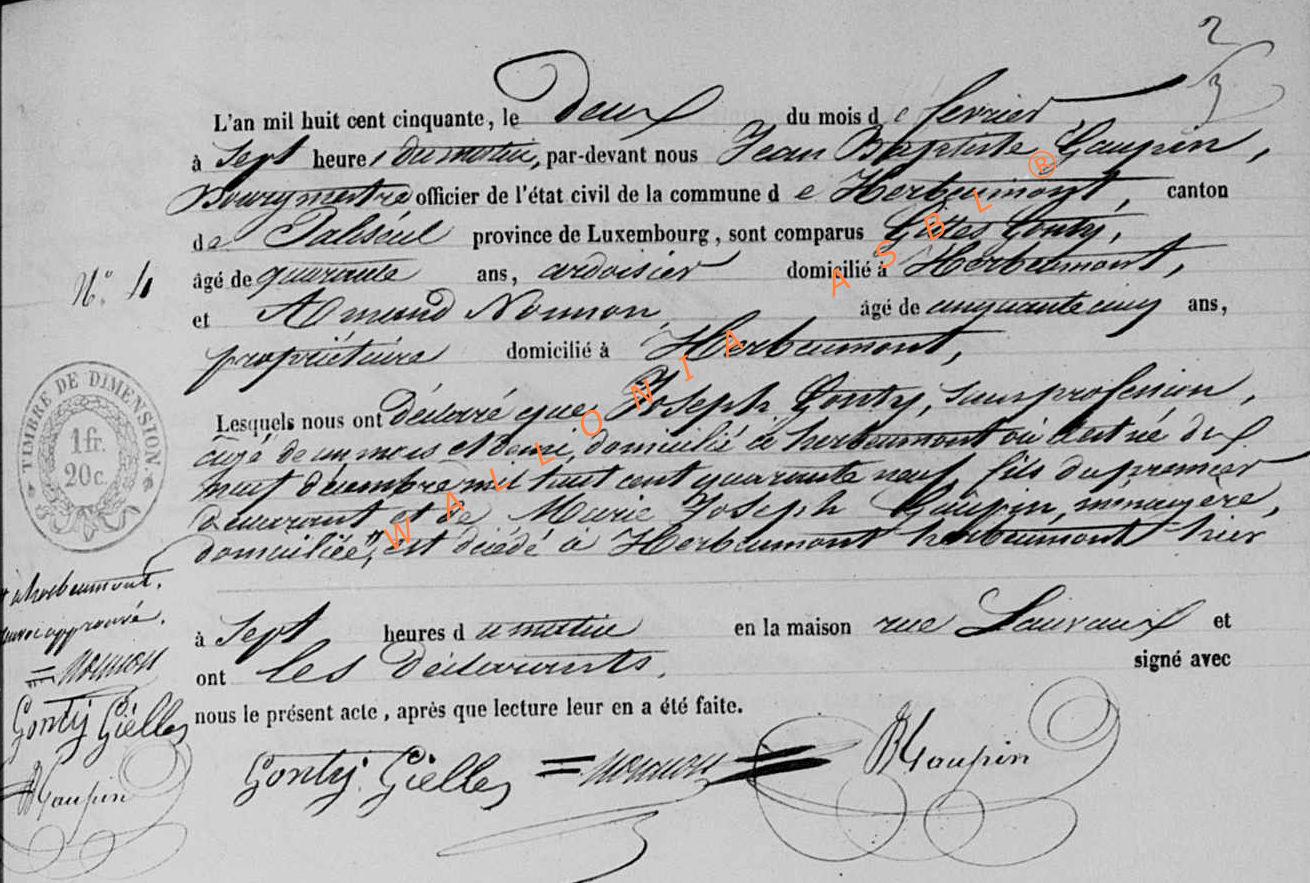 2
3
L'an mil huit cent cinquante, le Deux du mois de fevrier
à Sept heures du matin, par-devant nous Jean Baptiste Gaupin,
Bourgmestre officier de l'état civil de la commune de Herbeumont, canton
de Paliseul province de Luxembourg, sont comparus Gilles Gonty,
N.º 4
âgé de quarante ans, ardoisier domicilié à Herbeumont,
et Amand Nonnon, âgé de cinquante cinq ans,
propriétaire domicilié à Herbeumont,
Lesquels nous ont déclaré que Joseph Gonty, sans profession,
âgé de un mois et demi, domicilié à herbeumont où il est né dix
neuf décembre mil huit cent quarante neuf, fils du premier
déclarant et de Marie Joseph Gaupin, ménagère,
domiciliée, est décédé à Herbeumont herbeumont hier
à Sept heures du matin en la maison rue Lauvaux et
ont les Déclarants. signé avec
nous le présent acte, après que lecture leur en a été faite.
Gonty Gielles Nonnon JBGaupin
TIMBRE DE DIMENSION.
1 fr.
20 c.
à herbeumont.
approuvé.
Nonnon
Gonty Gielles
JBGaupin
WALLONIA ASBL ®